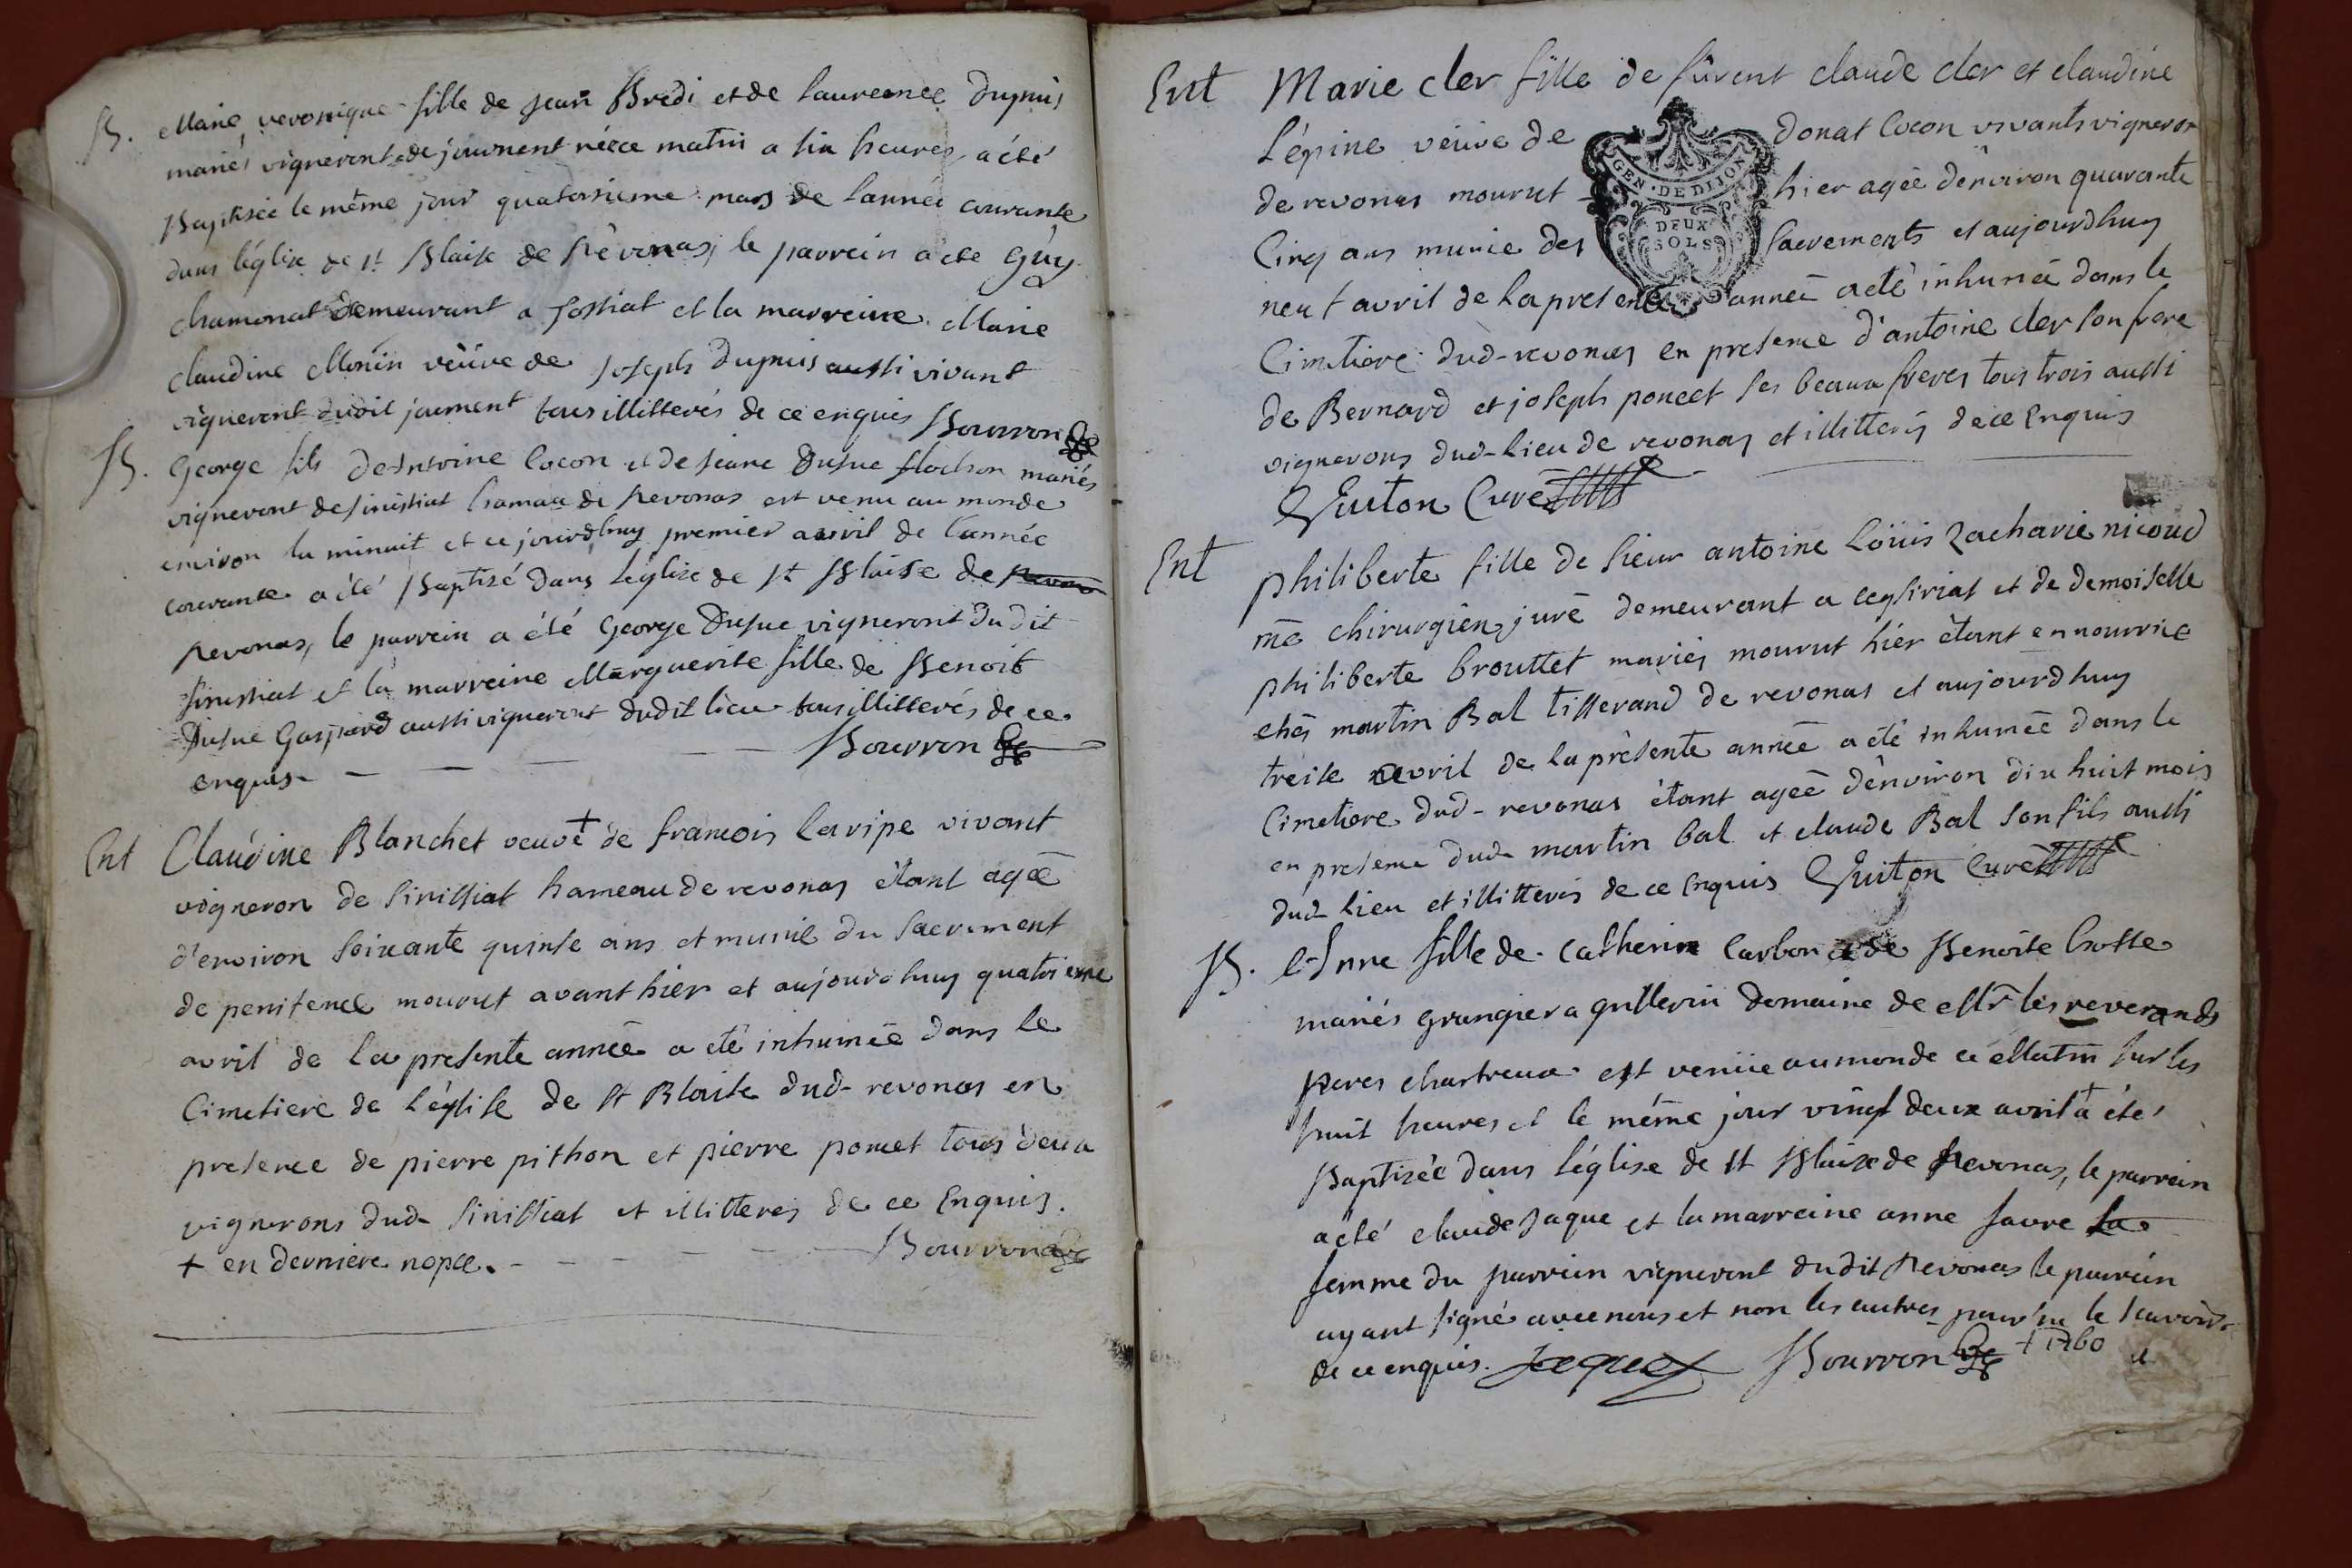 B. Marie veronique fille de jean Bredi et de laurence Dupuis
mariés vigneront de journent née ce matin a six heures, a été
Baptisée le même jour quatorsieme mars de l'année courante
dans l'église de st Blaise de Revonas, le parrein a été Guy
chamonat demeurant a fossiat et la marreine Marie
claudine Monin veuve de joseph Dupuis aussi vivant
vigneront dudit jourment tous illitterés de ce enquis Bourron
B. George fils de Antoine Cocon et de jeane Dufue flochon mariés
vigneront de sinissiat hamau de Revonas est venu au monde
environ la minuit et ce jourdhuy premier avril de l'année
courante a été Baptisé dans l'église de st Blaise de
Revonas, le parrein a été George Dufue vigneront du dit
sinissiat et la marreine Marguerite fille de Benoit
Dufue Gaspard aussi vigneront dudit lieu tous illitterés de ce
enquis Bourron
Ent Claudine Blanchet veuve + de francois laripe vivant
vigneron de sinissiat hameau de revonas étant agée
d'environ soixante quinse ans et munie du sacrement
de penitence mourut avant hier et aujourdhuy quatrieme
avril de la presente année a été inhumée dans le
Cimetiere de l'église de st Blaise dud- revonas en
presence de pierre pithon et pierre poncet tous deux
vignerons dud- sinissiat et illitterés de ce Enquis.
+ en derniere nopce. Bourron
Ent Marie cler fille de fûrent claude cler et claudine
L'épine veuve de donat Cocon vivants vigneron
GEN · DE DIJON
DEUX SOLS
de revonas mourut hier agée d'environ quarante
Cinq ans munie des sacrements et aujourdhuy
neuf avril de la presente année a été inhumée dans le
Cimetiere dud-revonas en presence d'antoine cler son frere
de Bernard et joseph poncet ses beaux freres tous trois aussi
vignerons dud-lieu de revonas et illitterés de ce Enquis
Guiton Curé
Ent philiberte fille de sieur antoine Loüis Zacharie nicoud
me chirurgien juré demeurant a ceysiriat et de demoiselle
philiberte brouttet mariés mourut hier étant en nourrice
chés martin Bal tisserand de revonas et aujourdhuy
treise avril de la présente année a été inhumée dans le
Cimetiere dud-revonas étant agée d'environ dix huit mois
en presence dud- martin bal et claude Bal son fils aussi
dud- lieu et illitterés de ce Enquis Guiton Curé
B. Anne fille de Catherin Carbon et de Benoite Crosse
mariés grangier a guillerin domaine de Mrs les reverands
peres chartreux est venüe au monde ce Matin sur les
huit heures et le même jour vingt deux avril + a été
Baptizée dans l'église de st Blaise de Revonas, le parrein
a été claude jaque et la marreine anne favre
femme du parrein vigneront dudit Revonas le parrein
ayant signé avec nous et non les autres pour ne le scavoir
de ce enquis. jaque Bourron + 1760